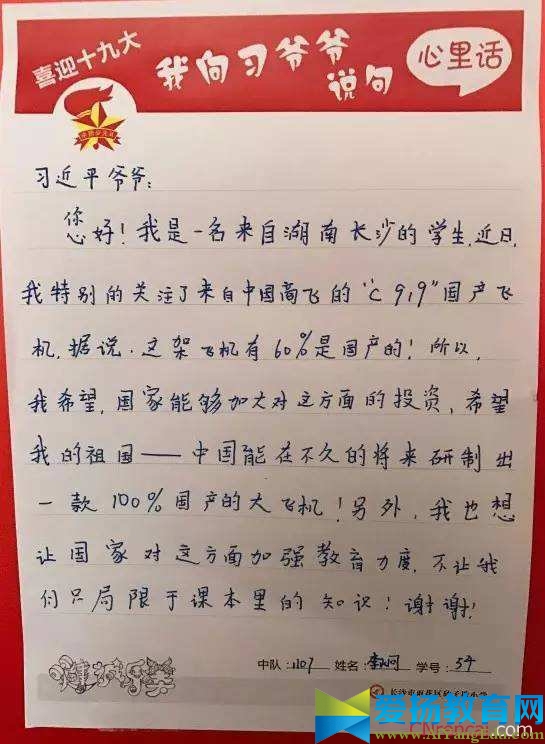 喜迎十九大
我向习爷爷
说句
心里话
习近平爷爷:
您好!我是一名来自湖南长沙的学生,近日,
我特别的关注了来自中国商飞的“C919”国产飞
机,据说,这架飞机有60%是国产的!所以,
我希望,国家能够加大对这方面的投资,希望
我的祖国——中国能在不久的将来研制出
一款100%国产的大飞机!另外,我也想
让国家对这方面加强教育力度,不让我
们只局限于课本里的知识!谢谢!
中队:1107 姓名: 学号:54
爱扬教育网
www.AiYangEdu.com